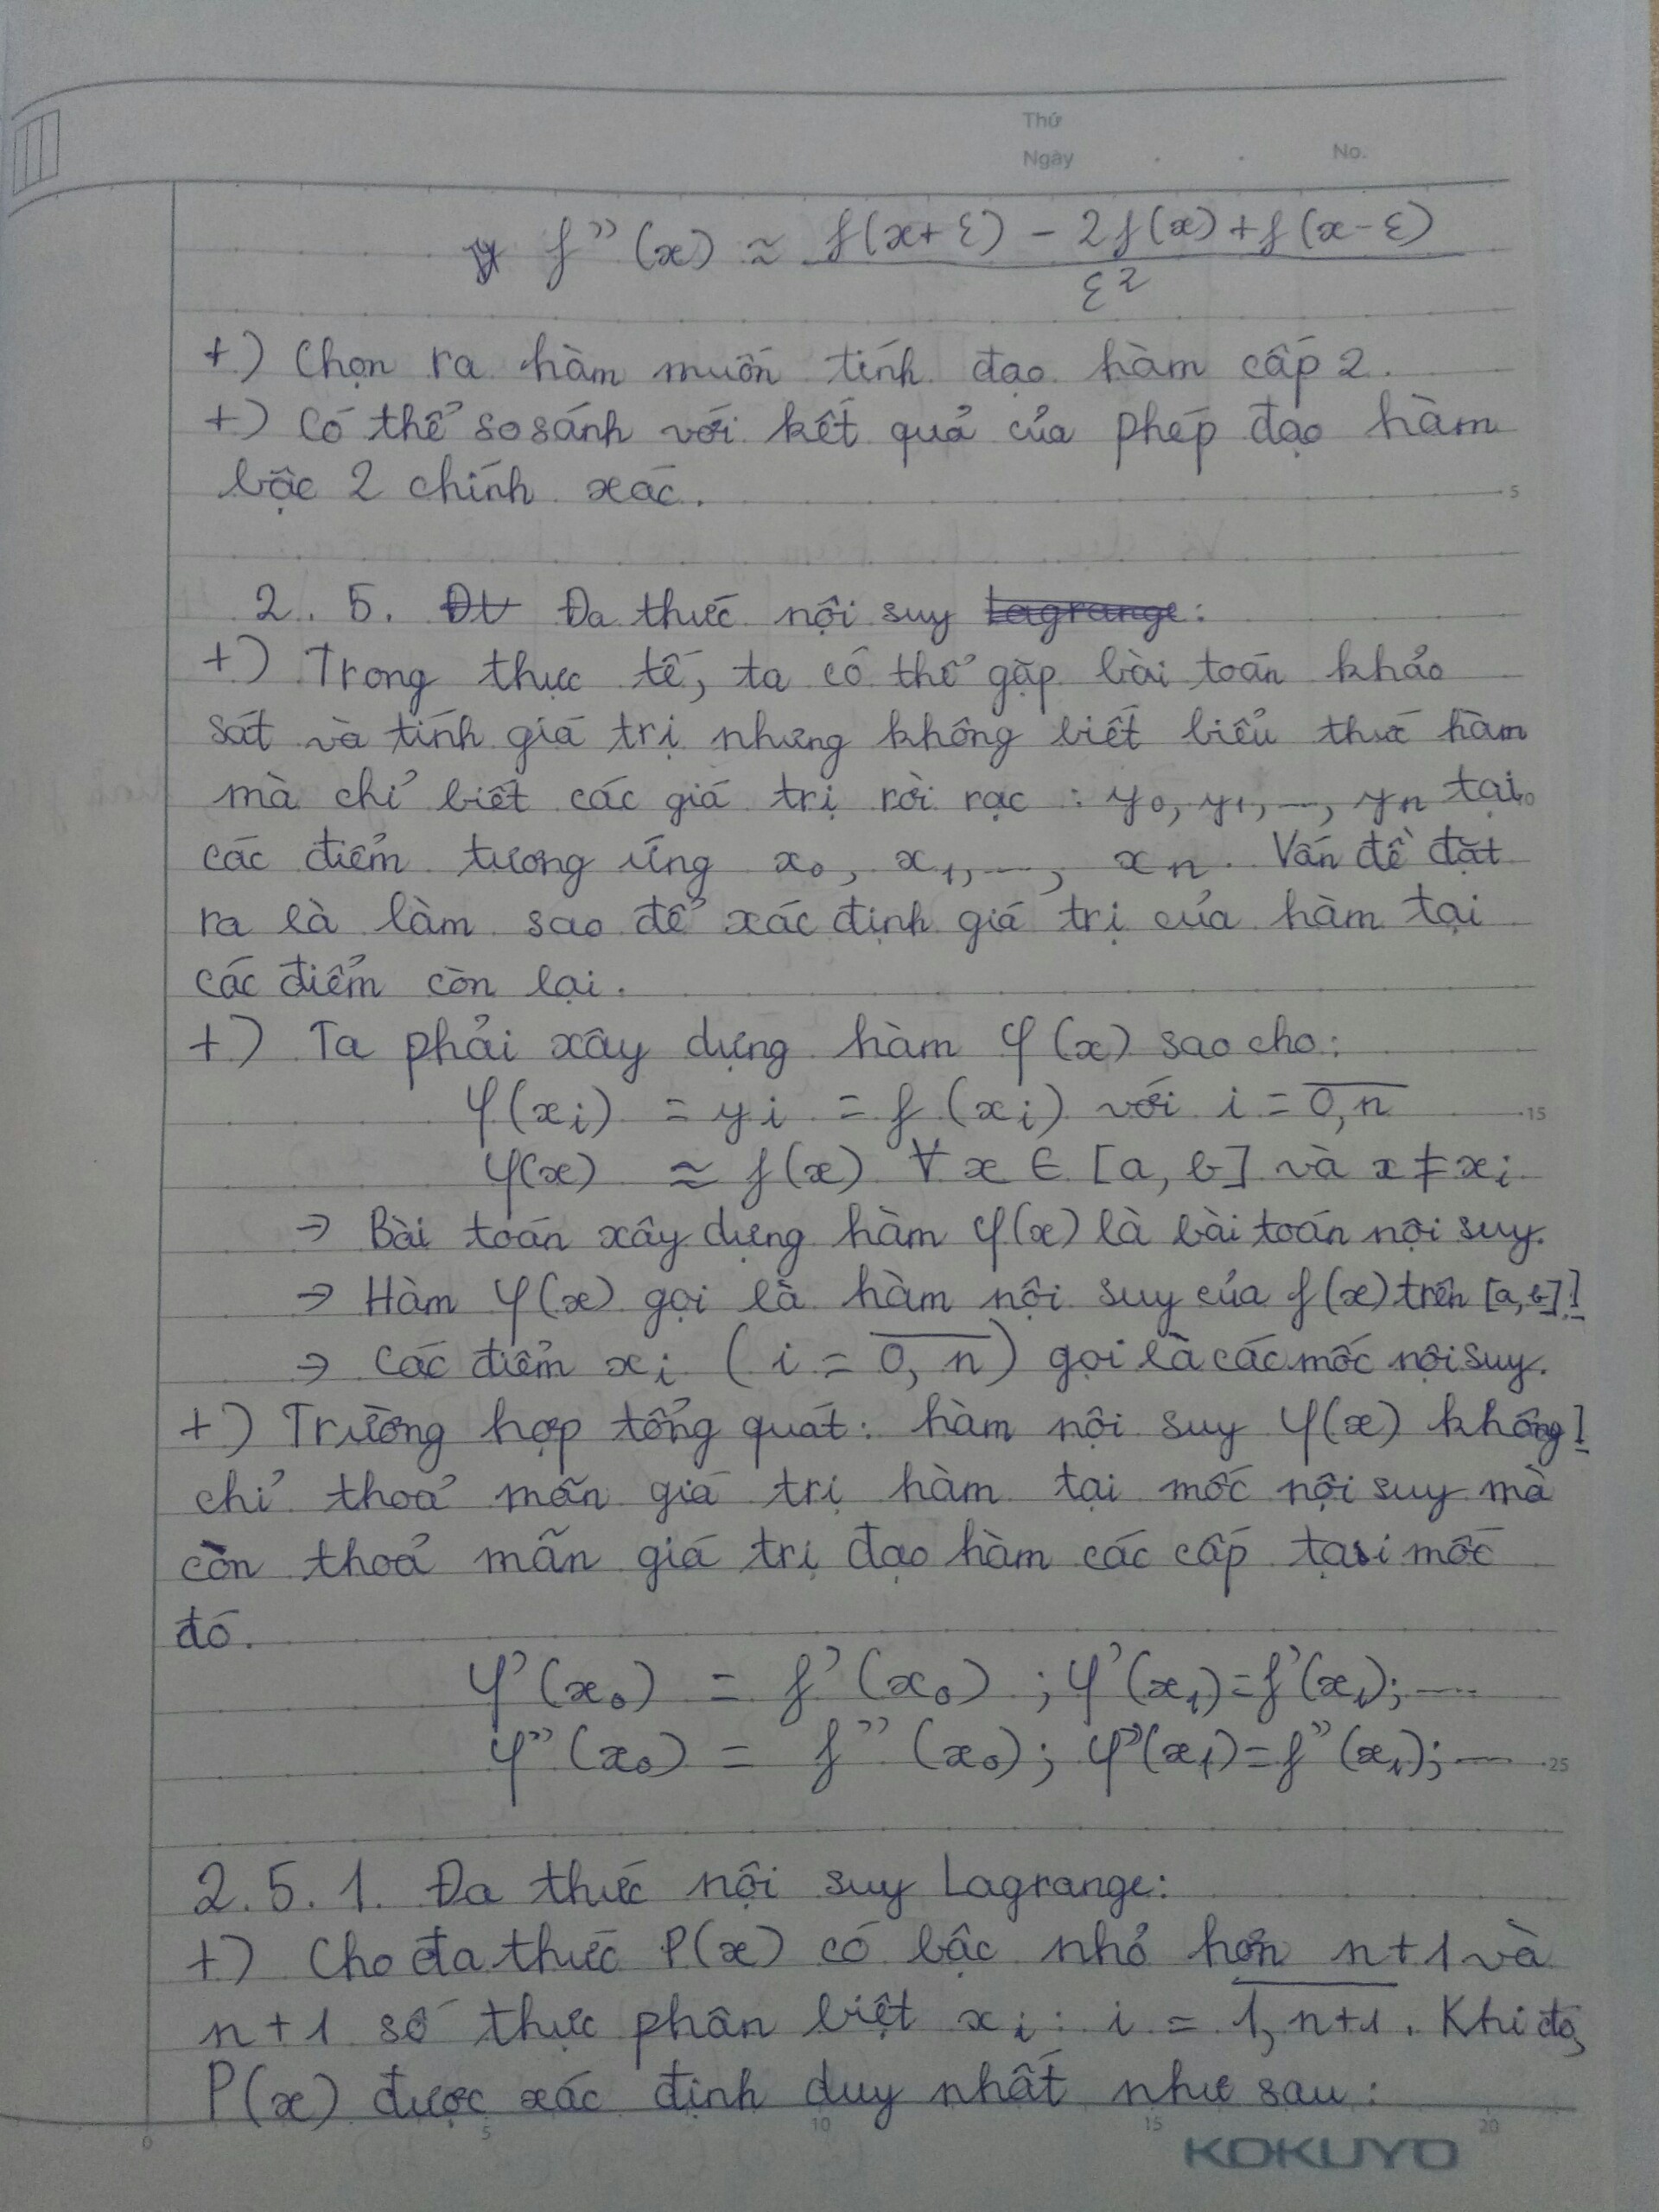 Thứ
Ngày . . No.
f''(x) ≈ (f(x+ε) - 2f(x) + f(x-ε)) / ε²
+) Chọn ra hàm muốn tính đạo hàm cấp 2.
+) Có thể so sánh với kết quả của phép đạo hàm
bậc 2 chính xác. 5
2.5. Đa thức nội suy Lagrange:
+) Trong thực tế, ta có thể gặp bài toán khảo
sát và tính giá trị nhưng không biết biểu thức hàm
mà chỉ biết các giá trị rời rạc : y₀, y₁, ..., yₙ tại
các điểm tương ứng x₀, x₁, ..., xₙ. Vấn đề đặt
ra là làm sao để xác định giá trị của hàm tại
các điểm còn lại.
+) Ta phải xây dựng hàm φ(x) sao cho:
φ(xᵢ) = yᵢ = f(xᵢ) với i = \overline{0,n} 15
φ(x) ≈ f(x) ∀ x ∈ [a, b] và x ≠ xᵢ
→ Bài toán xây dựng hàm φ(x) là bài toán nội suy.
→ Hàm φ(x) gọi là hàm nội suy của f(x) trên [a,b].
→ Các điểm xᵢ (i = \overline{0, n}) gọi là các mốc nội suy.
+) Trường hợp tổng quát: hàm nội suy φ(x) không
chỉ thoả mãn giá trị hàm tại mốc nội suy mà
còn thoả mãn giá trị đạo hàm các cấp tại mốc
đó.
φ'(x₀) = f'(x₀) ; φ'(x₁) = f'(x₁); ...
φ''(x₀) = f''(x₀) ; φ''(x₁) = f''(x₁); ... 25
2.5.1. Đa thức nội suy Lagrange:
+) Cho đa thức P(x) có bậc nhỏ hơn n+1 và
n+1 số thực phân biệt xᵢ: i = \overline{1, n+1}. Khi đó,
P(x) được xác định duy nhất như sau:
0 5 10 15 20
KOKUYO